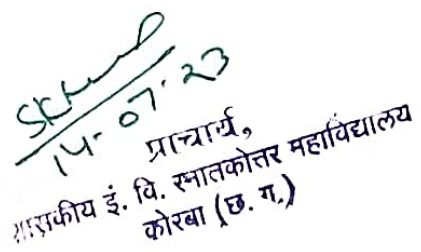 14-07-23
प्राचार्य,
शासकीय इं. वि. स्नातकोत्तर महाविद्यालय
कोरबा (छ. ग.)